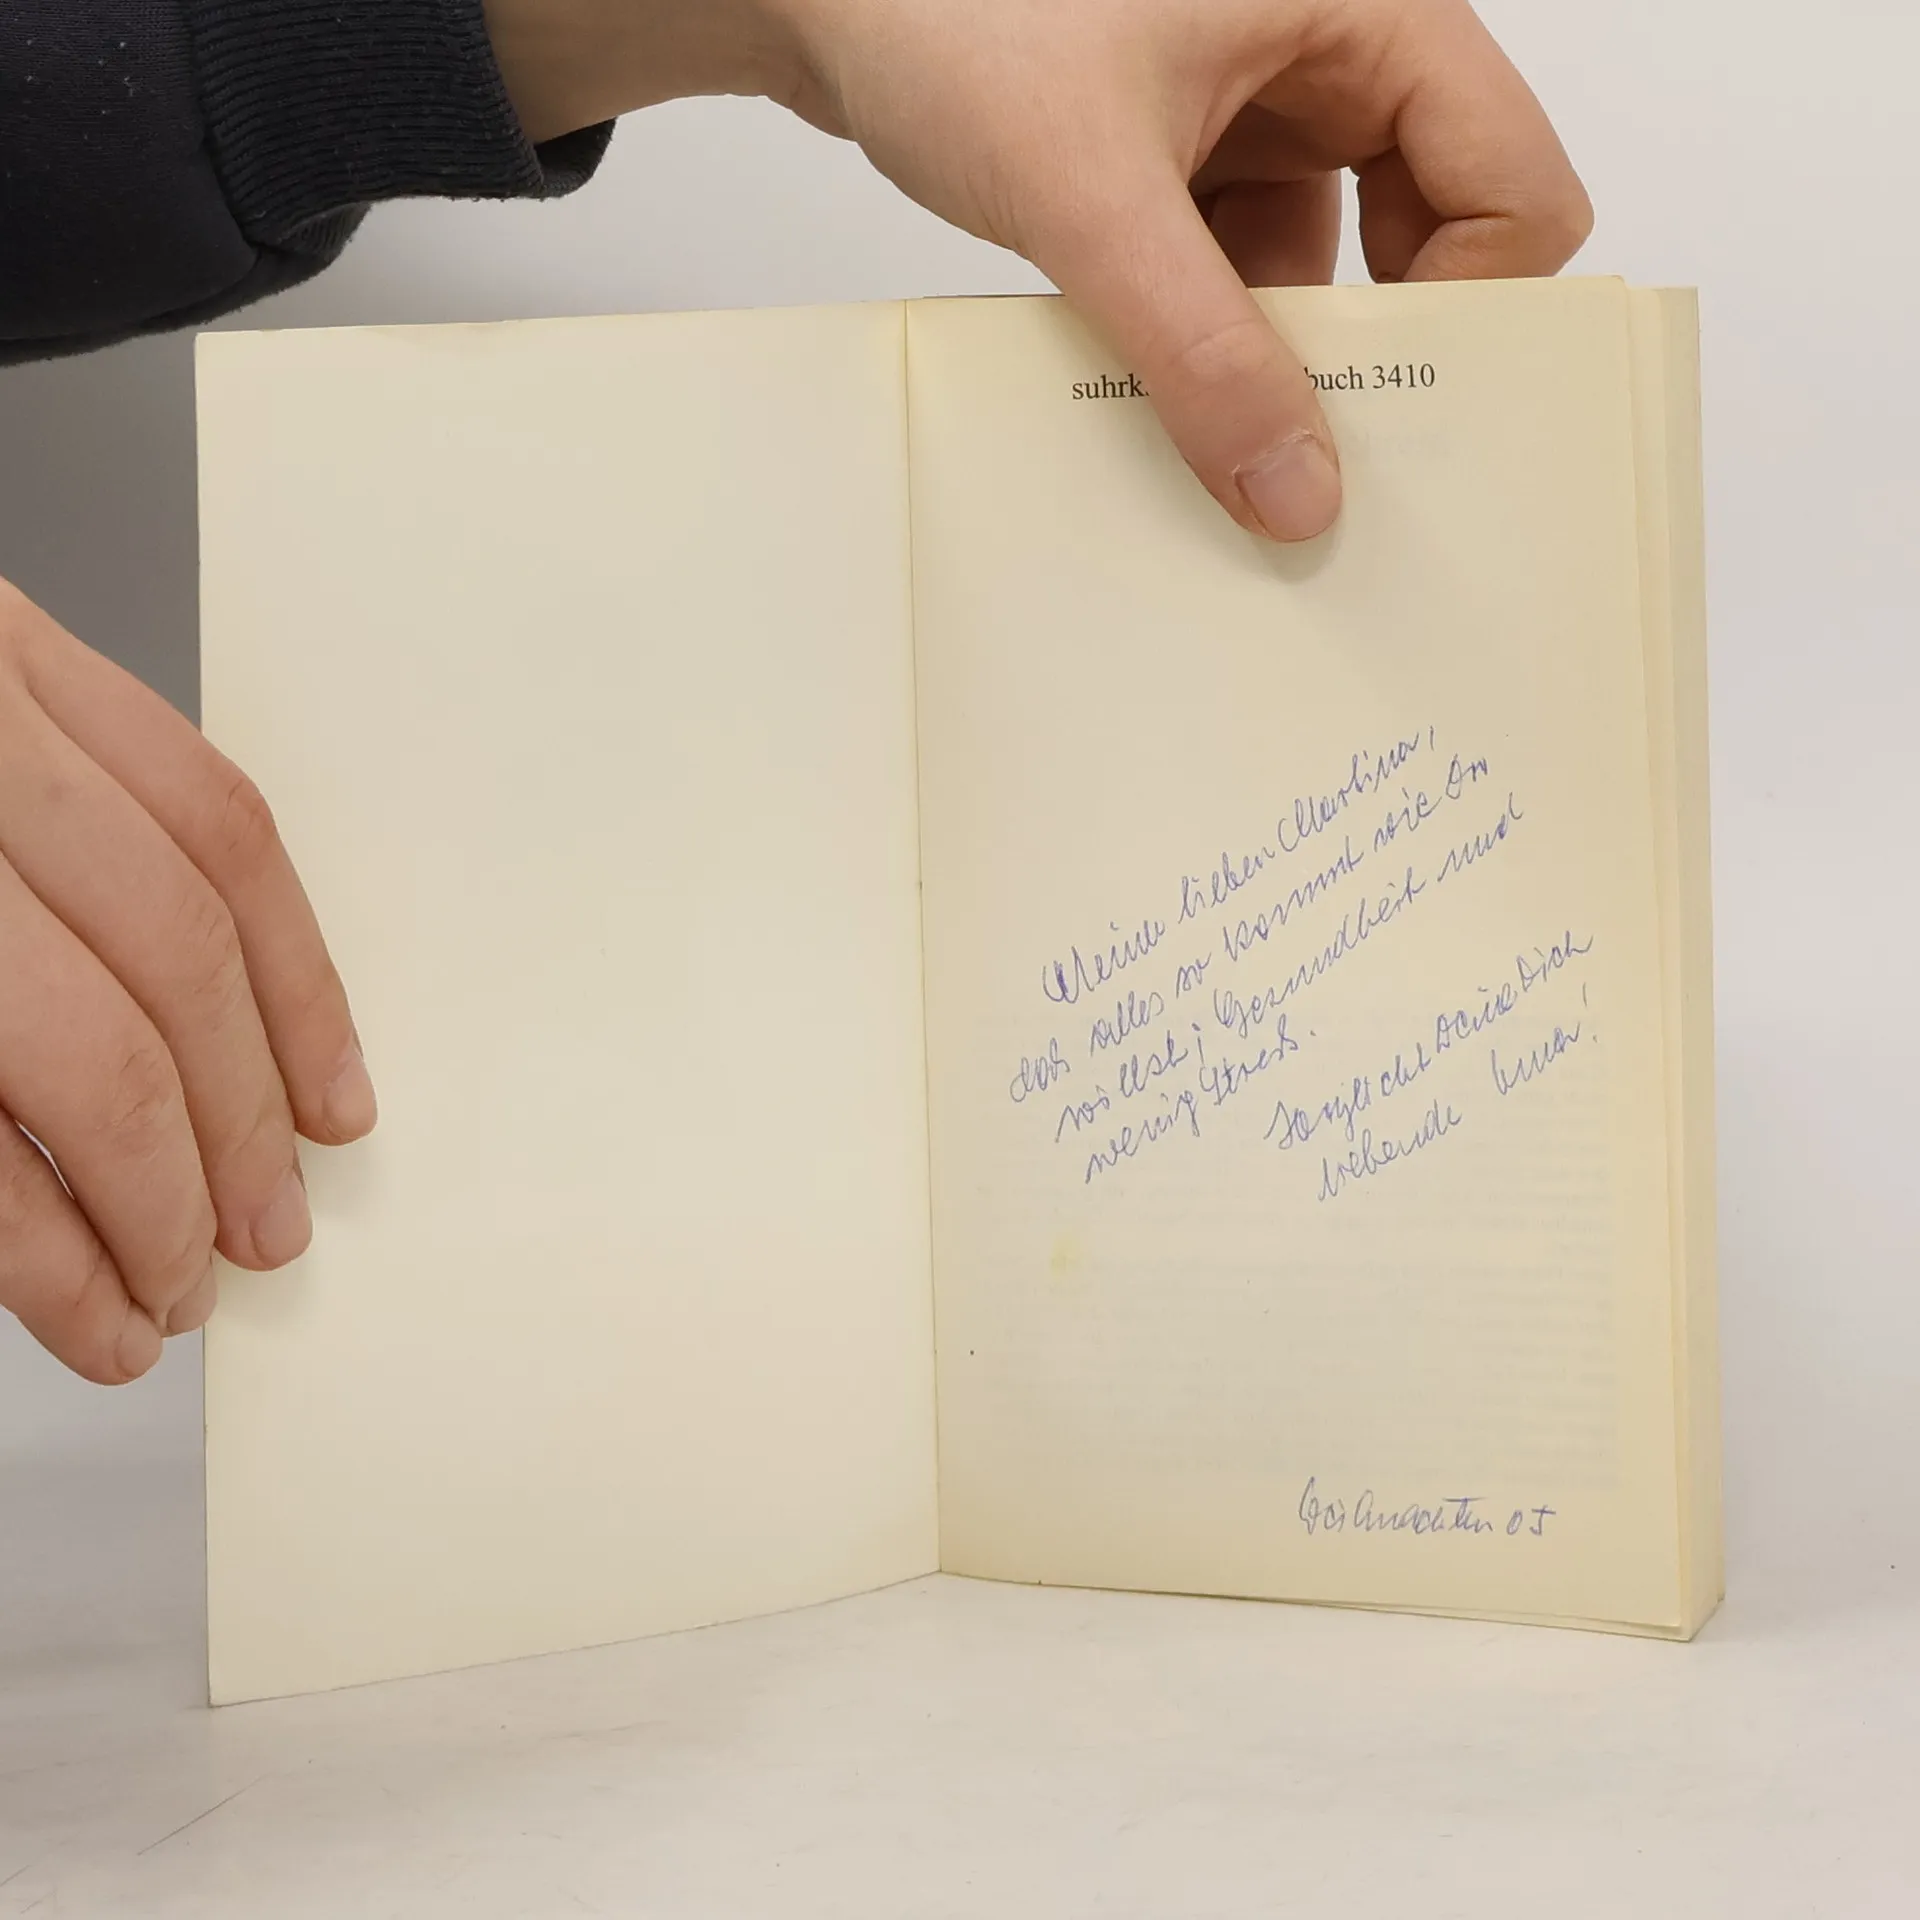 suhrk buch 3410
Meine lieben Martina,
das alles so kommt wie Du
willst; Gesundheit und
wenig Stress.
Herzlichst Deine Dich
liebende
Weihnachten 05